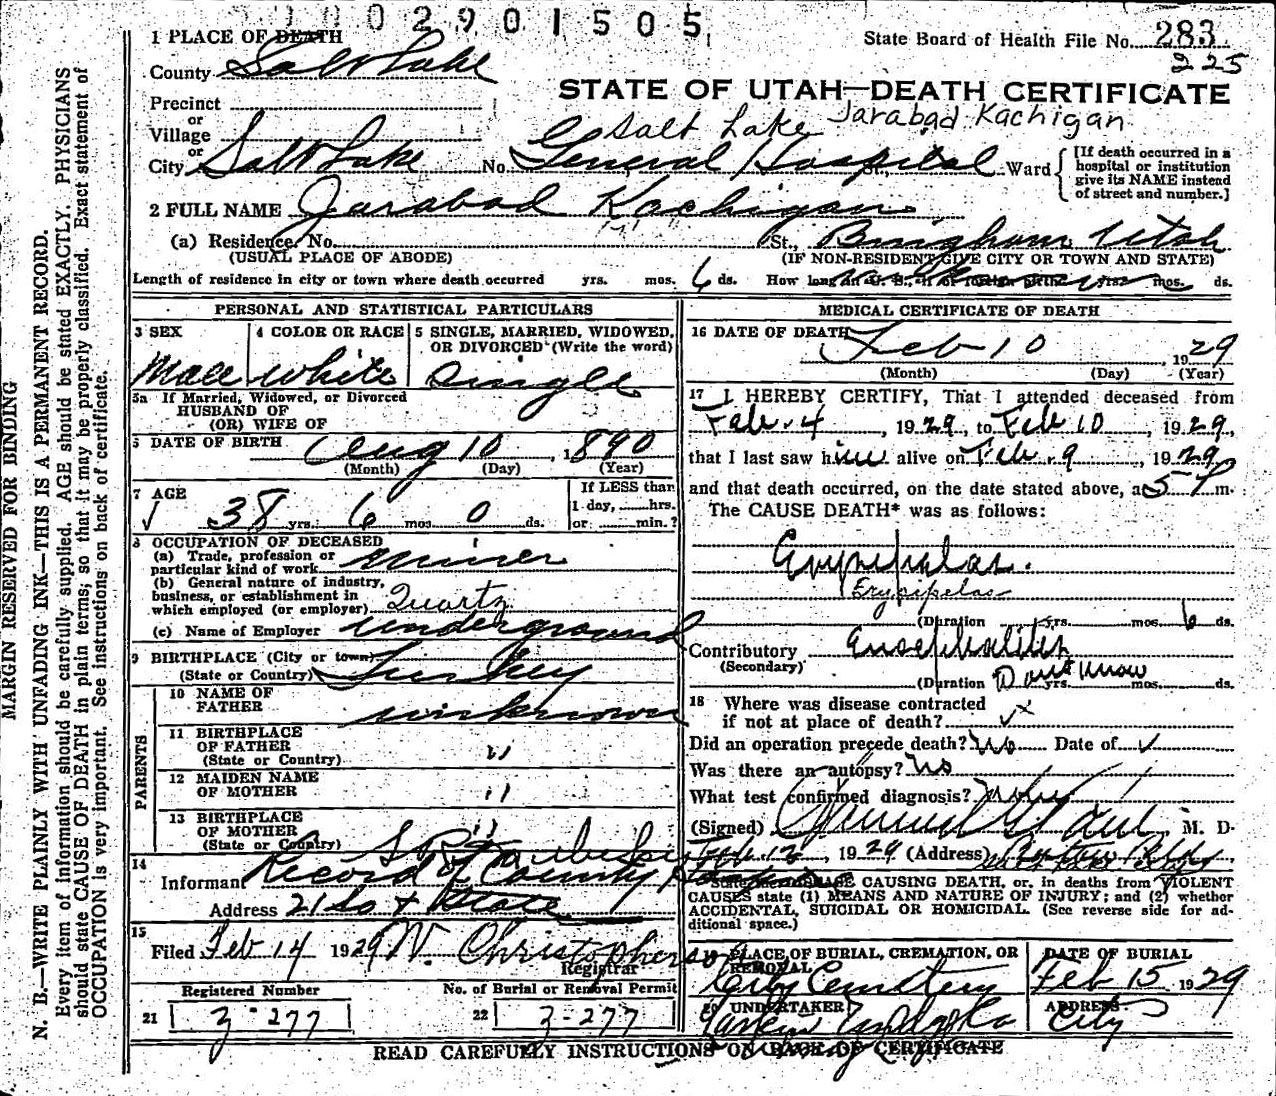 0 0 2 9 0 1 5 0 5
1 PLACE OF DEATH
State Board of Health File No. 283
225
County Salt Lake
STATE OF UTAH—DEATH CERTIFICATE
Precinct
or
Village
or
Salt Lake Jarabad Kachigan
City Salt Lake No. General Hospital St., Ward
[If death occurred in a
hospital or institution
give its NAME instead
of street and number.]
2 FULL NAME Jarabad Kachigan
(a) Residence, No. St., Bingham Utah
(USUAL PLACE OF ABODE) (IF NON-RESIDENT GIVE CITY OR TOWN AND STATE)
Length of residence in city or town where death occurred yrs. mos. 6 ds. How long in U. S., if of foreign birth unknown yrs. mos. ds.
PERSONAL AND STATISTICAL PARTICULARS
3 SEX
Male
4 COLOR OR RACE
White
5 SINGLE, MARRIED, WIDOWED,
OR DIVORCED (Write the word)
Single
5a If Married, Widowed, or Divorced
HUSBAND OF
(OR) WIFE OF
DATE OF BIRTH Aug 10, 1890
(Month) (Day) (Year)
7 AGE
38 yrs. 6 mos 0 ds.
If LESS than
1 day, hrs.
or min.?
8 OCCUPATION OF DECEASED
(a) Trade, profession or
particular kind of work Miner
(b) General nature of industry,
business, or establishment in
which employed (or employer) Quartz
(c) Name of Employer underground
9 BIRTHPLACE (City or town)
(State or Country) Turkey
PARENTS
10 NAME OF
FATHER unknown
11 BIRTHPLACE
OF FATHER "
(State or Country)
12 MAIDEN NAME
OF MOTHER "
13 BIRTHPLACE
OF MOTHER "
(State or Country)
14
Informant Record of County
Address 21 So & State
15
Filed Feb 14 1929 W. Christopherson
Registrar
Registered Number
21 3-277
No. of Burial or Removal Permit
22 3-277
MEDICAL CERTIFICATE OF DEATH
16 DATE OF DEATH
Feb 10 1929
(Month) (Day) (Year)
17 I HEREBY CERTIFY, That I attended deceased from
Feb. 4, 1929, to Feb 10, 1929,
that I last saw him alive on Feb. 9, 1929
and that death occurred, on the date stated above, at 5 m.
The CAUSE DEATH* was as follows:
Erysipelas.
Erysipelas
(Duration yrs. mos. 6 ds.
Contributory Encephalitis
(Secondary)
(Duration Dont Know yrs. mos. ds.
18 Where was disease contracted
if not at place of death?
Did an operation precede death? No Date of
Was there an autopsy? No
What test confirmed diagnosis?
(Signed) M. D.
Feb 12, 1929 (Address) Boston Bldg
CAUSING DEATH, or, in deaths from VIOLENT
CAUSES state (1) MEANS AND NATURE OF INJURY; and (2) whether
ACCIDENTAL, SUICIDAL OR HOMICIDAL. (See reverse side for ad-
ditional space.)
PLACE OF BURIAL, CREMATION, OR
REMOVAL
City Cemetery
DATE OF BURIAL
Feb 15 1929
UNDERTAKER
Larkin
ADDRESS
City
READ CAREFULLY INSTRUCTIONS ON BACK OF CERTIFICATE
MARGIN RESERVED FOR BINDING
N. B.—WRITE PLAINLY WITH UNFADING INK—THIS IS A PERMANENT RECORD.
Every item of information should be carefully supplied. AGE should be stated EXACTLY. PHYSICIANS
should state CAUSE OF DEATH in plain terms; so that it may be properly classified. Exact statement of
OCCUPATION is very important. See instructions on back of certificate.